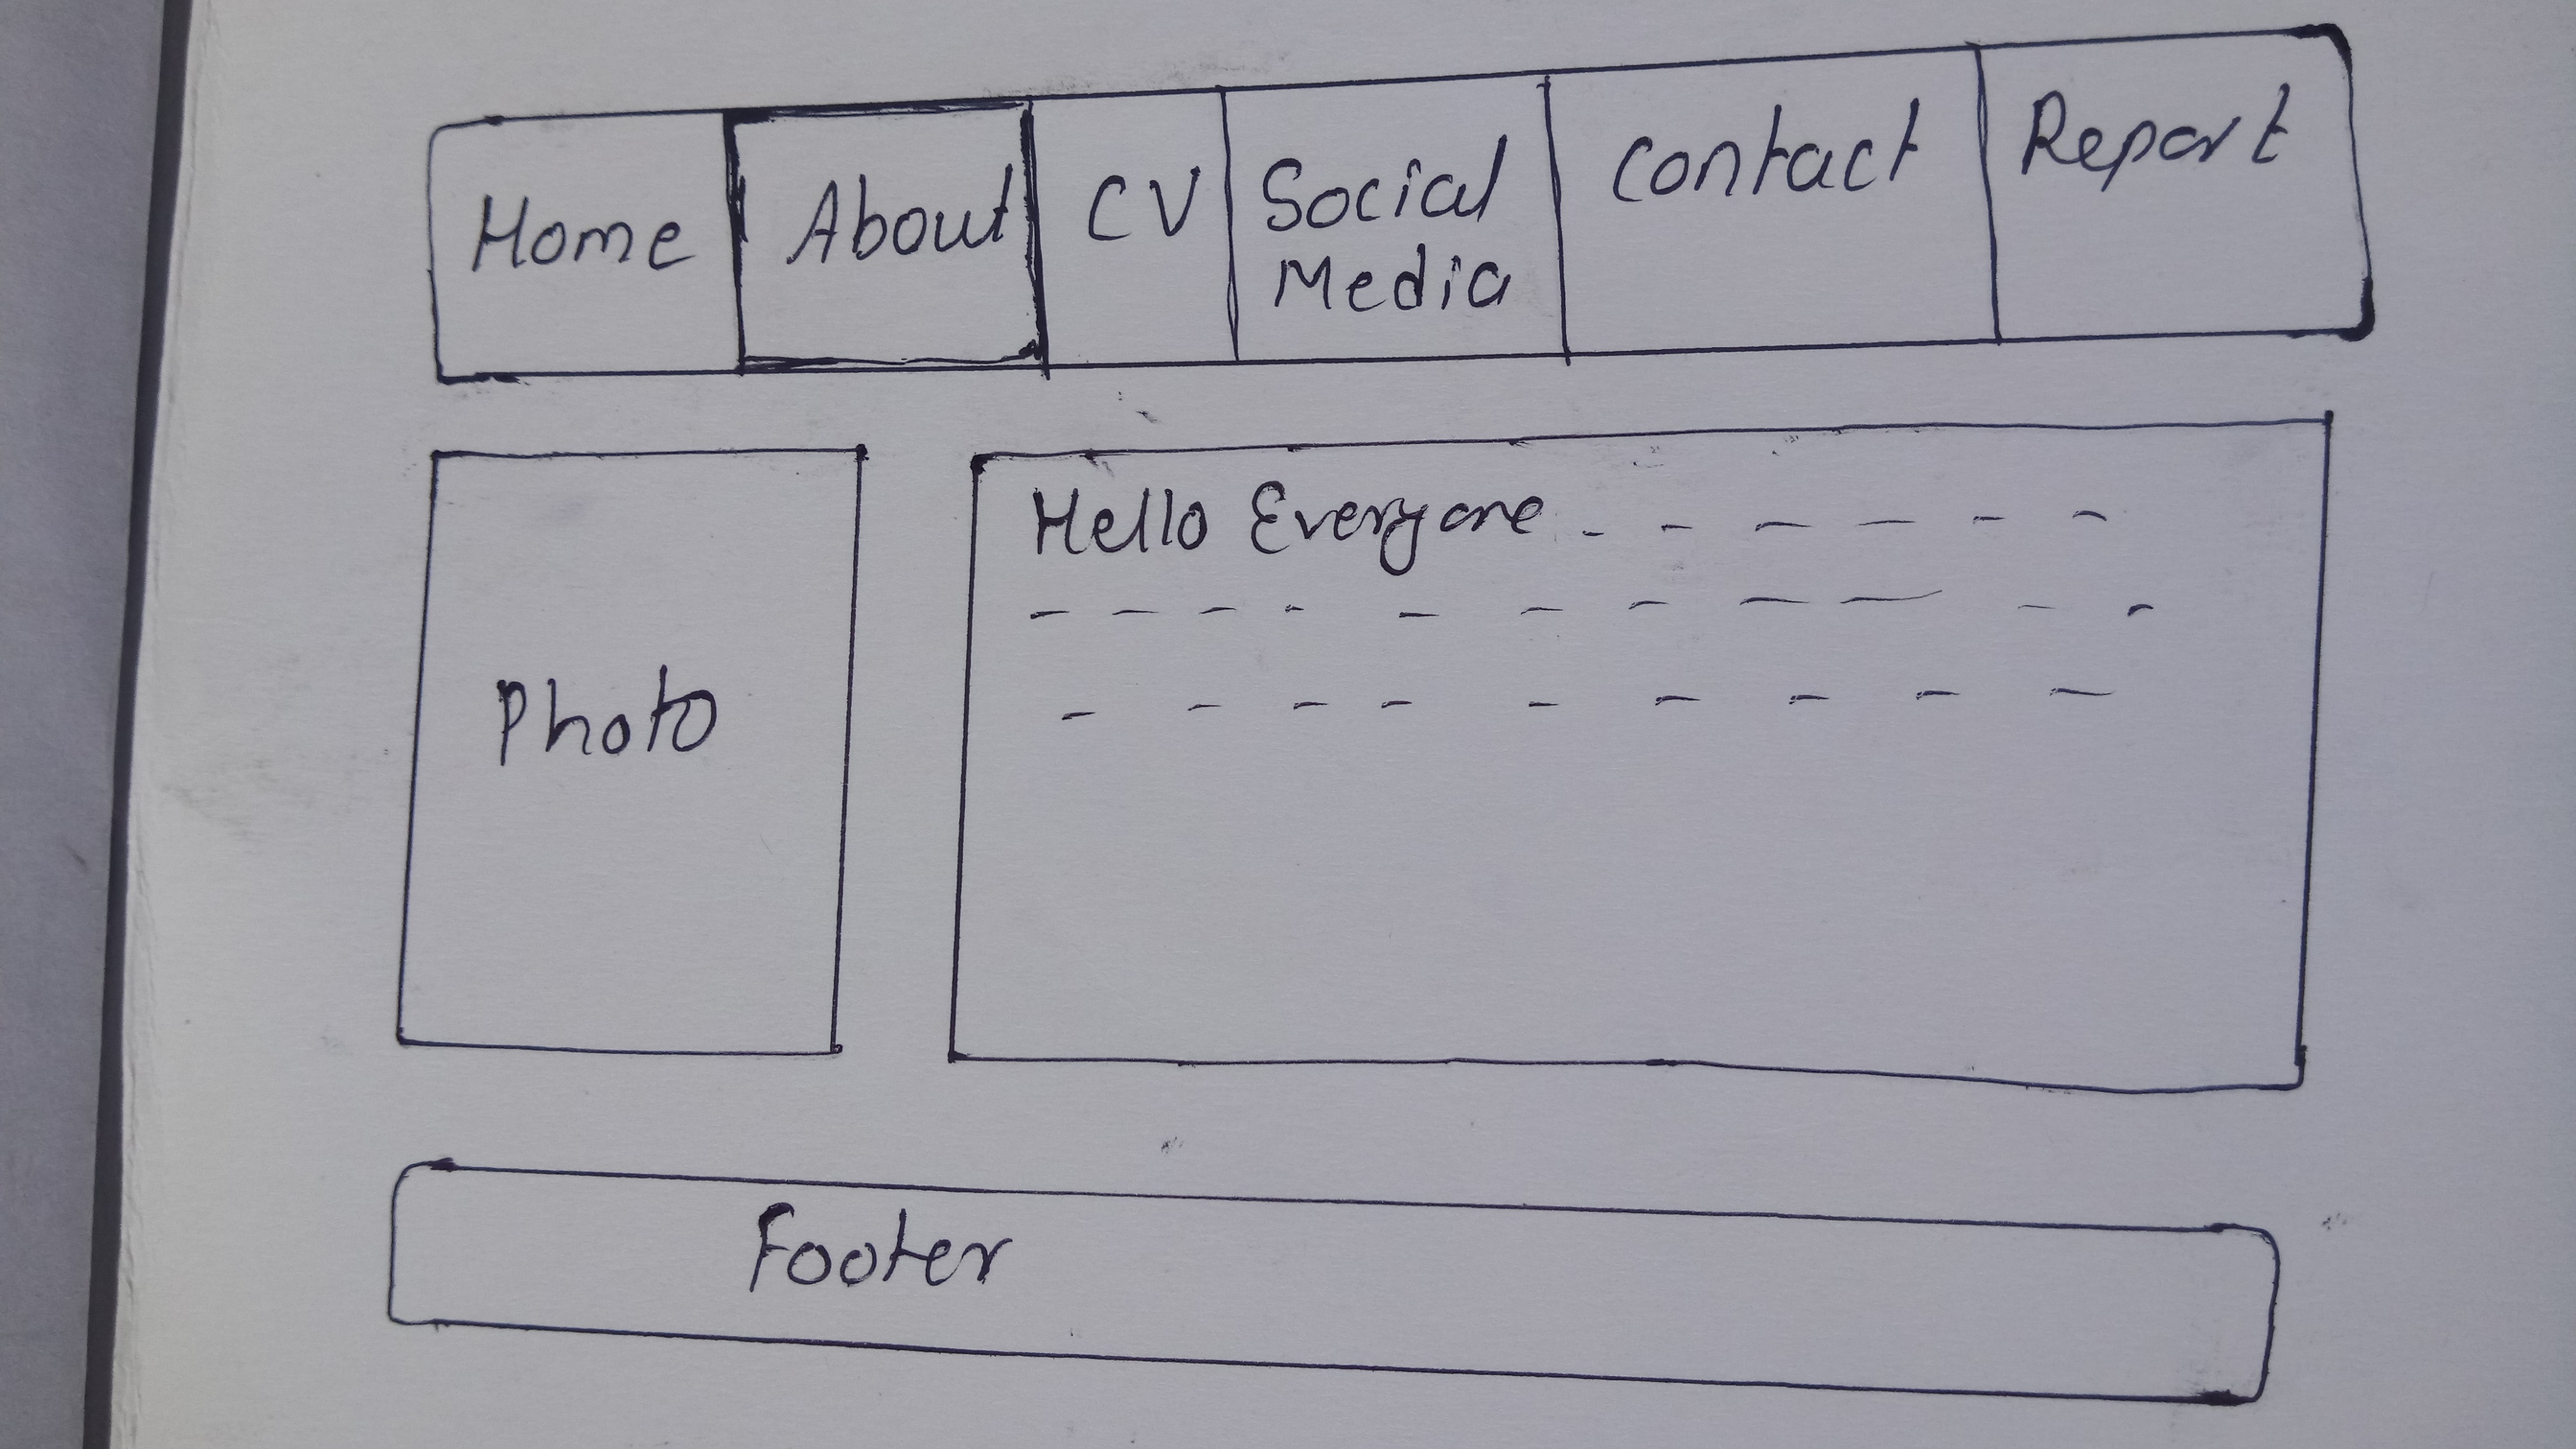 Home About CV Social Media Contact Report
Hello Everyone - - - - - -
- - - - - - - - - - -
- - - - - - - - -
Photo
Footer